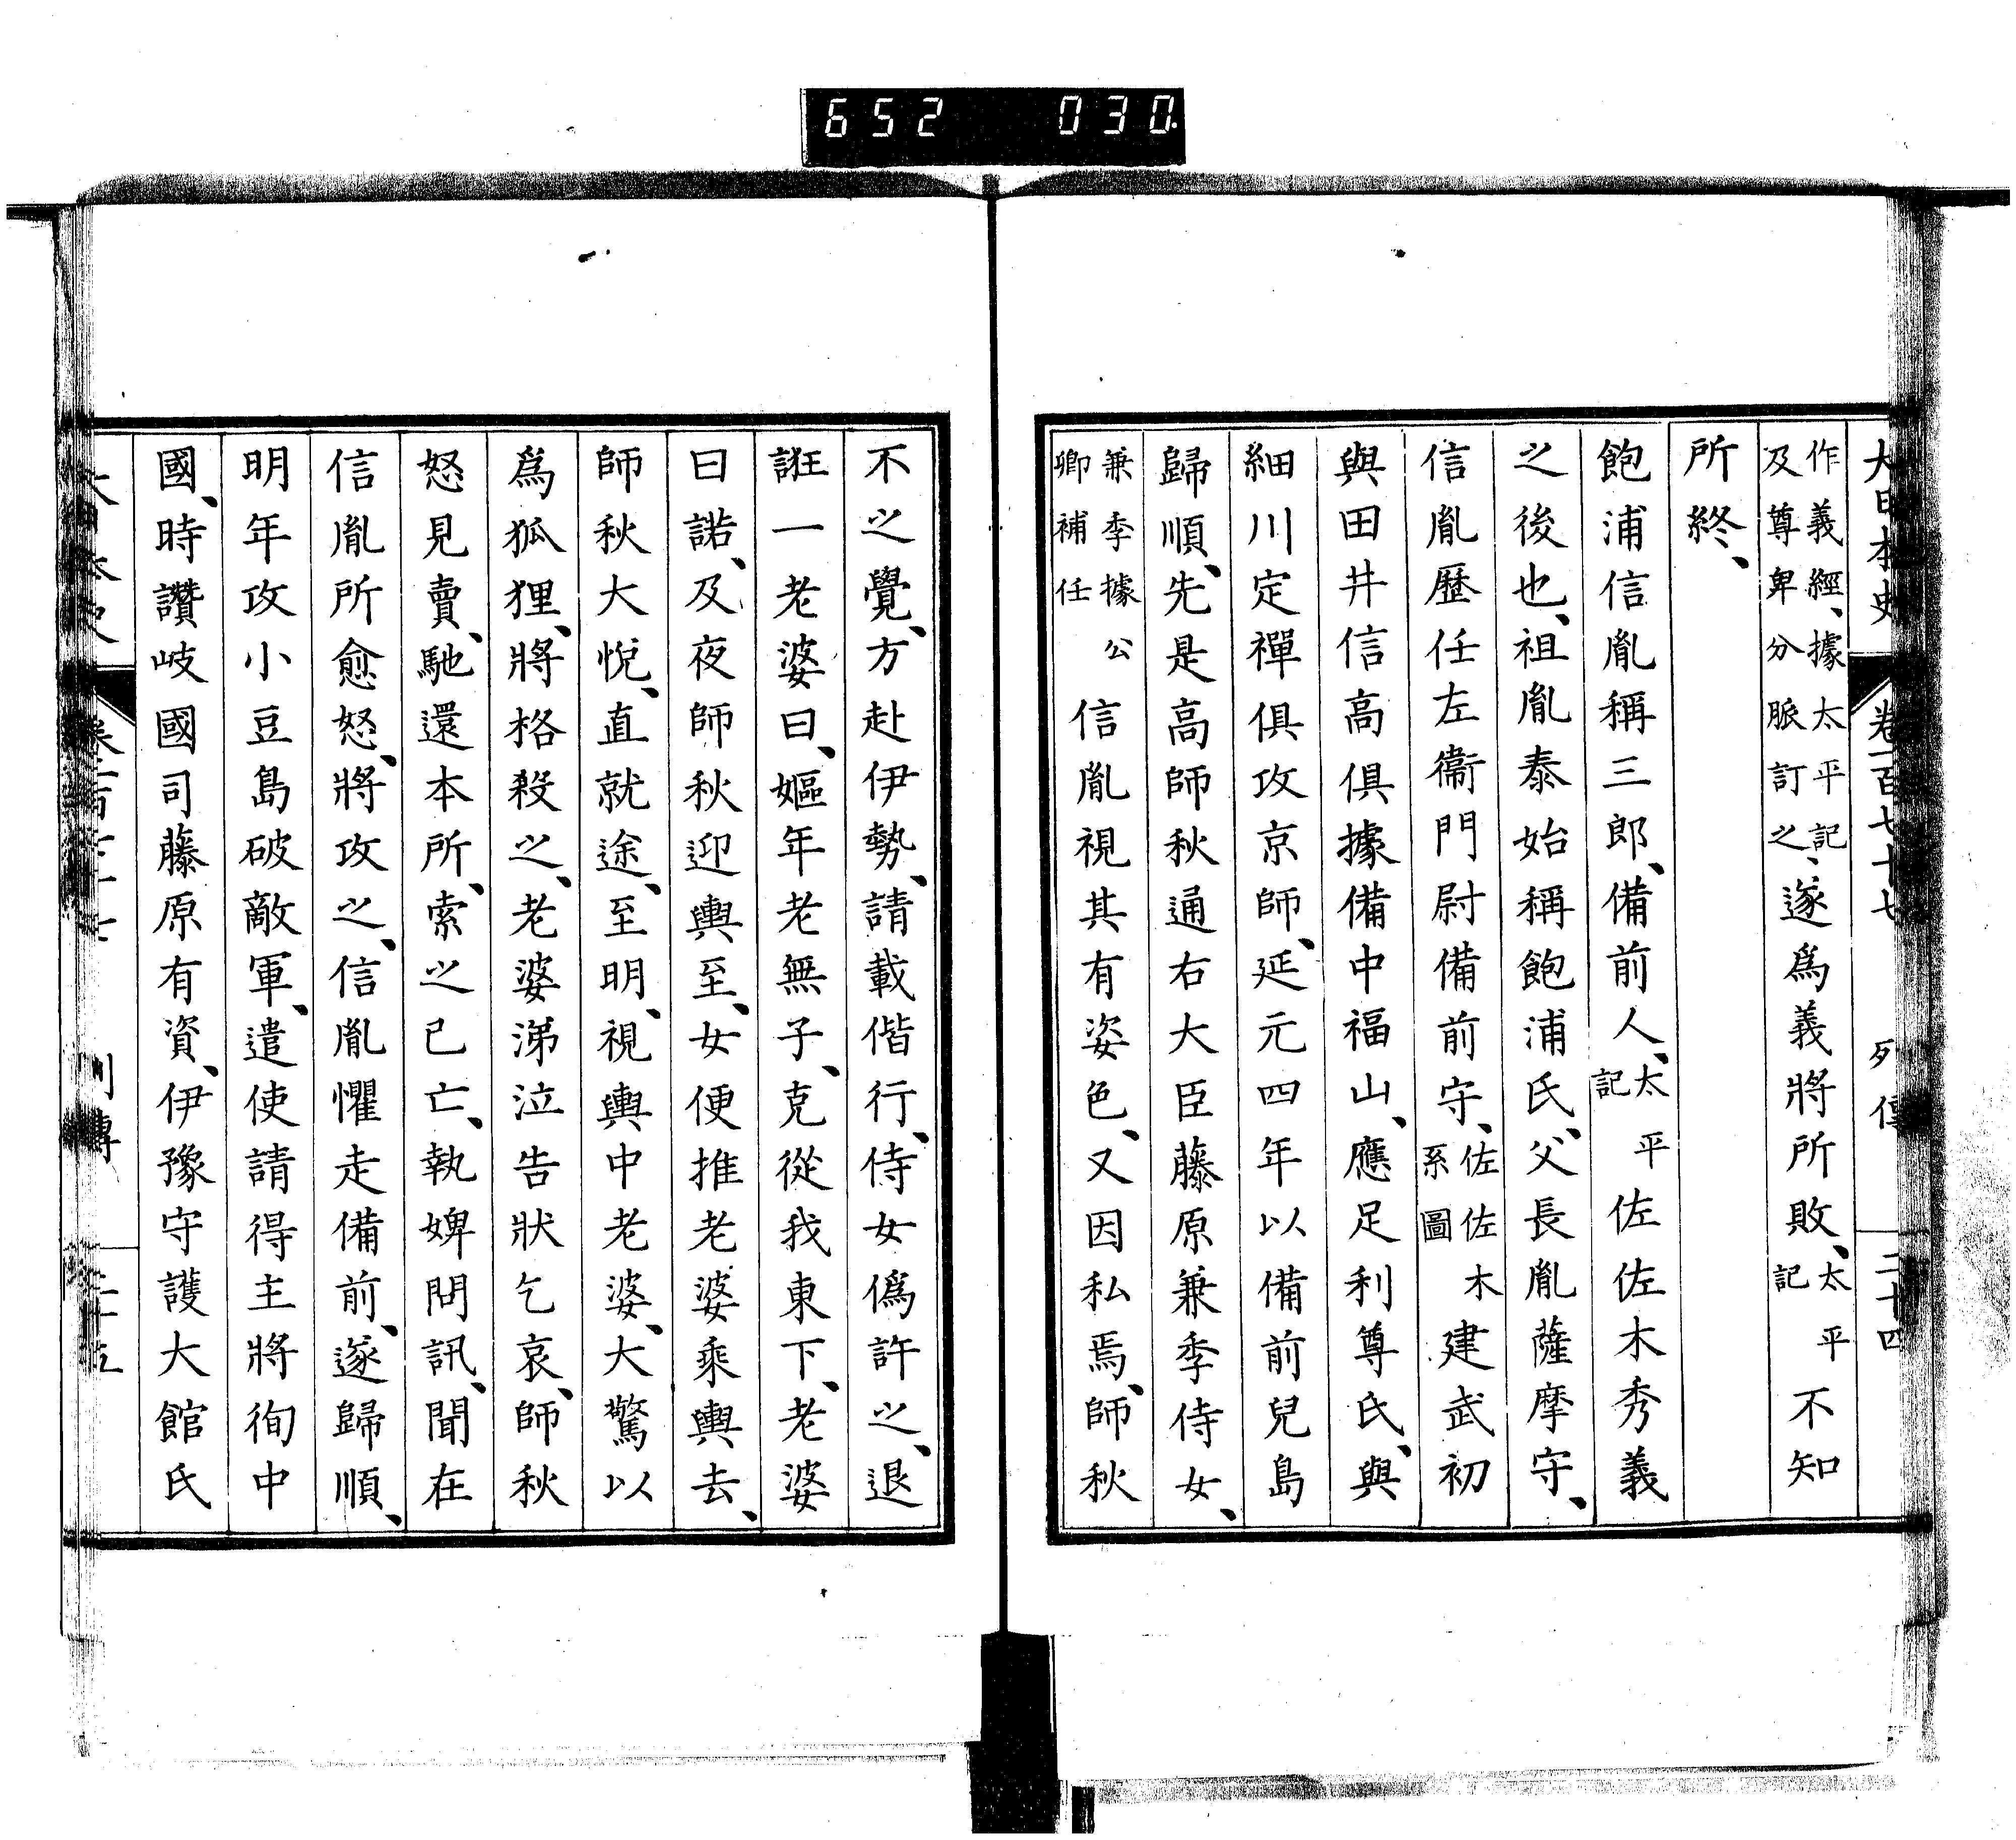 652 030
大日本史 卷一百七十七 列傳 二十四
作義經、據太平記
及尊卑分脈訂之、遂爲義將所敗、太平記不知
所終、
飽浦信胤稱三郎、備前人、太平記佐佐木秀義
之後也、祖胤泰始稱飽浦氏、父長胤薩摩守、
信胤歷任左衞門尉備前守、佐佐木系圖建武初
與田井信高俱據備中福山、應足利尊氏、與
細川定禪俱攻京師、延元四年以備前兒島
歸順、先是高師秋通右大臣藤原兼季侍女、
兼季據公卿補任信胤視其有姿色、又因私焉、師秋
不之覺、方赴伊勢、請載偕行、侍女僞許之、退
誑一老婆曰、嫗年老無子、克從我東下、老婆
曰諾、及夜師秋迎輿至、女便推老婆乘輿去、
師秋大悅、直就途、至明、視輿中老婆、大驚以
爲狐狸、將格殺之、老婆涕泣告狀乞哀、師秋
怒見賣、馳還本所、索之已亡、執婢問訊、聞在
信胤所愈怒、將攻之、信胤懼走備前、遂歸順、
明年攻小豆島破敵軍、遣使請得主將徇中
國、時讚岐國司藤原有資、伊豫守護大館氏
列傳